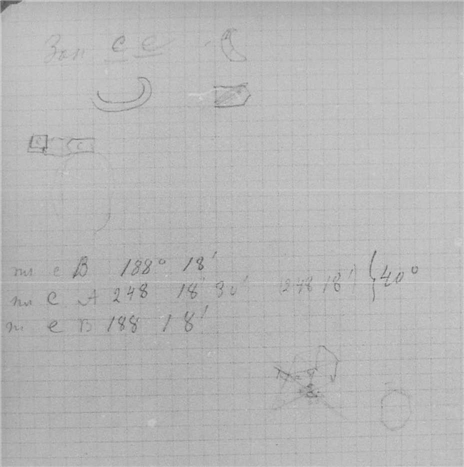 Зап с е
е с
т е В 188° 18'
т с А 248 18' 30' (248 18') } 40°
т е В 188 18'